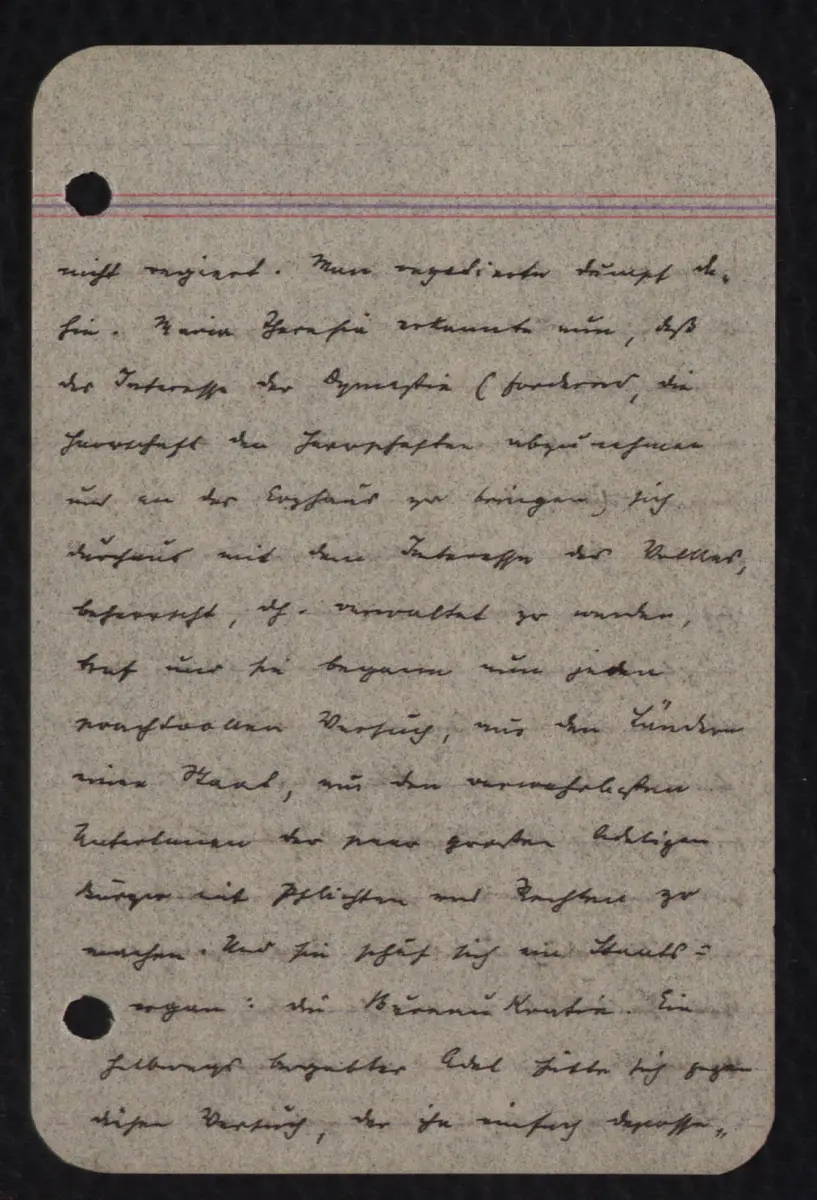 nicht regiert. Man vegetierte dumpf da-
hin. Maria Theresia erkannte nun, daß
das Interesse der Dynastie (fordernd, die
Herrschaft den Herrschaften abzunehmen
und an das Erzhaus zu bringen) sich
durchaus mit dem Interesse des Volkes,
beherrscht, dh. verwaltet zu werden,
traf und sie begann nun jenen
prachtvollen Versuch, aus den Ländern
einen Staat, aus den verwahrlosten
Untertanen der paar großen Adeligen
Bürger mit Pflichten und Rechten zu
machen. Und sie schuf sich ein Staats=
organ: die Bureaukratie. Ein
halbwegs begabter Adel hätte sich gegen
diesen Versuch, der ihn einfach deposse-